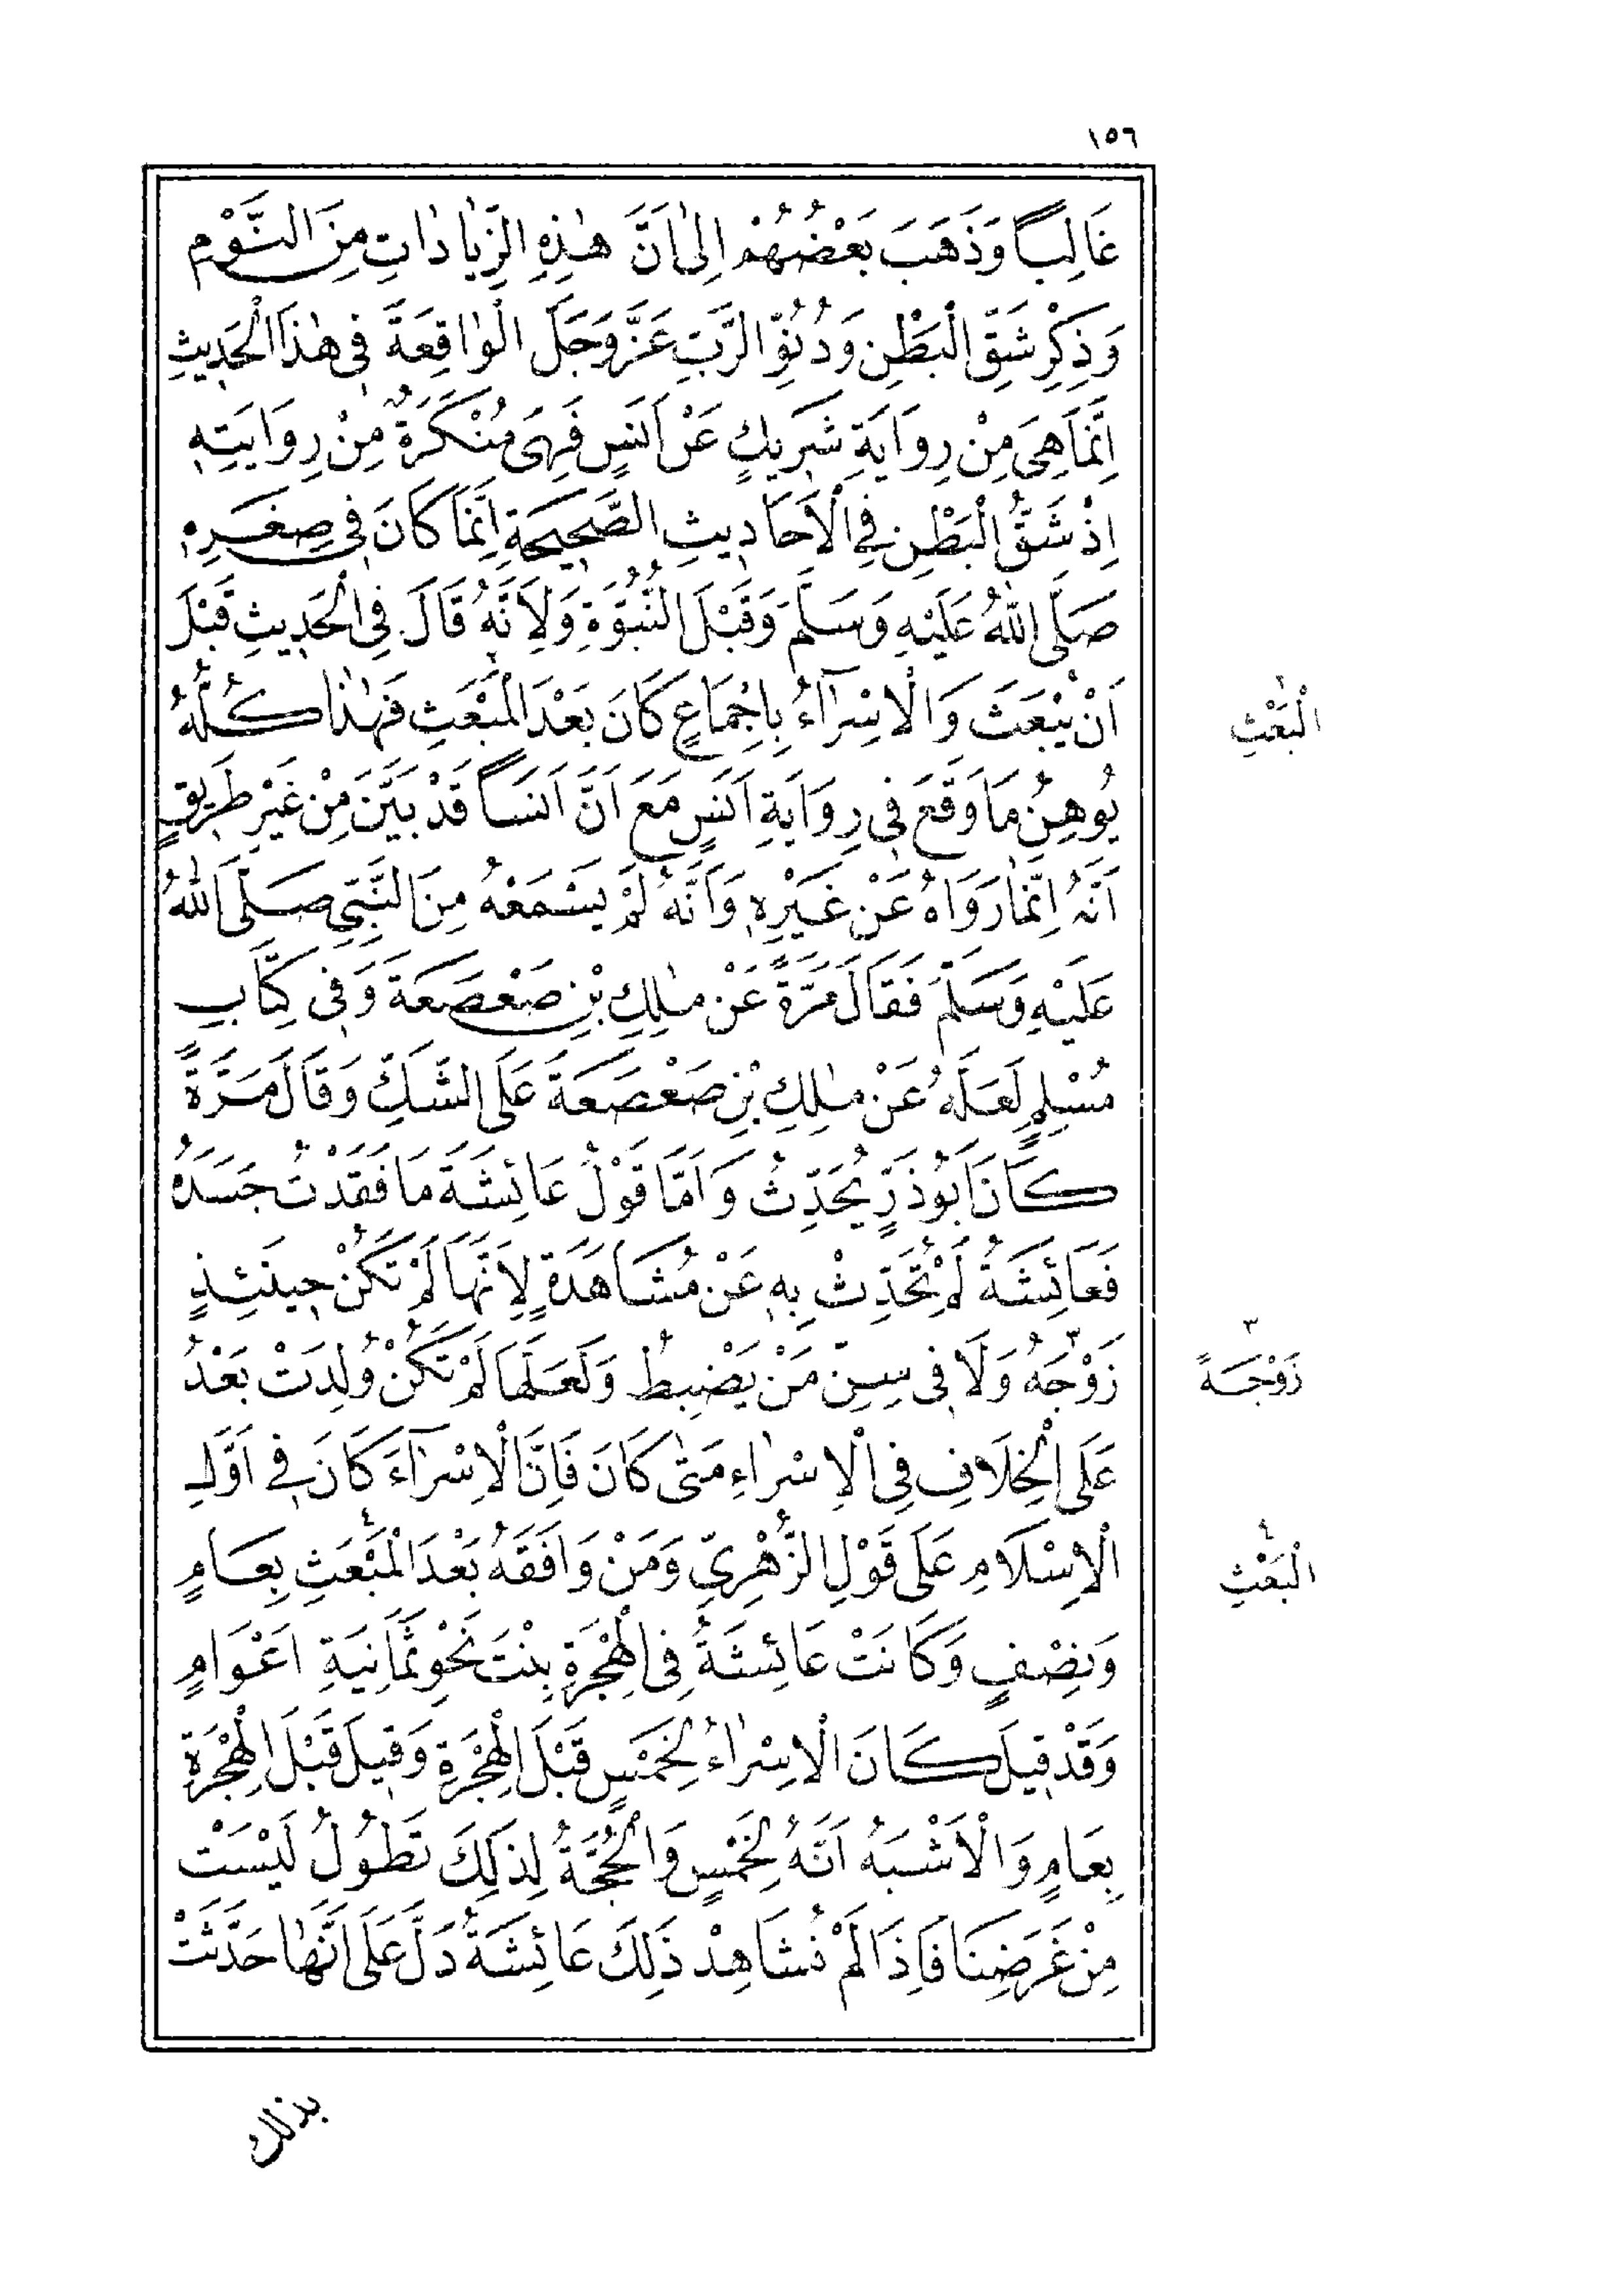 ١٥٦
غَالِبًا وَذَهَبَ بَعْضُهُمْ اِلٰى اَنَّ هٰذِهِ الزِّيَادَاتِ مِنَ النَّوْمِ
وَذِكْرِ شَقِّ الْبَطْنِ وَدُنُوِّ الرَّبِّ عَزَّ وَجَلَّ الْوَاقِعَةَ فِى هٰذَا الْحَدِيثِ
اِنَّمَا هِىَ مِنْ رِوَايَةِ شَرِيكٍ عَنْ اَنَسٍ فَهِىَ مُنْكَرَةٌ مِنْ رِوَايَتِهِ
اِذْ شَقُّ الْبَطْنِ فِى الْاَحَادِيثِ الصَّحِيحَةِ اِنَّمَا كَانَ فِى صِغَرِهِ
صَلَّى اللّٰهُ عَلَيْهِ وَسَلَّمَ وَقَبْلَ النُّبُوَّةِ وَلِاَنَّهُ قَالَ فِى الْحَدِيثِ قَبْلَ
اَنْ يُبْعَثَ وَالْاِسْرَآءُ بِاِجْمَاعٍ كَانَ بَعْدَ الْمَبْعَثِ فَهٰذَا كُلُّهُ
يُوهِنُ مَا وَقَعَ فِى رِوَايَةِ اَنَسٍ مَعَ اَنَّ اَنَسًا قَدْ بَيَّنَ مِنْ غَيْرِ طَرِيقٍ
اَنَّهُ اِنَّمَا رَوَاهُ عَنْ غَيْرِهِ وَاَنَّهُ لَمْ يَسْمَعْهُ مِنَ النَّبِىِّ صَلَّى اللّٰهُ
عَلَيْهِ وَسَلَّمَ فَقَالَ مَرَّةً عَنْ مٰلِكِ بْنِ صَعْصَعَةَ وَفِى كِتَابِ
مُسْلِمٍ لَعَلَّهُ عَنْ مٰلِكِ بْنِ صَعْصَعَةَ عَلَى الشَّكِّ وَقَالَ مَرَّةً
كَانَ اَبُو ذَرٍّ يُحَدِّثُ وَاَمَّا قَوْلُ عَائِشَةَ مَا فَقَدْتُ جَسَدَهُ
فَعَائِشَةُ لَمْ تُحَدِّثْ بِهِ عَنْ مُشَاهَدَةٍ لِاَنَّهَا لَمْ تَكُنْ حِينَئِذٍ
زَوْجَهُ٣ وَلَا فِى سِنِّ مَنْ يَضْبِطُ وَلَعَلَّهَا لَمْ تَكُنْ وُلِدَتْ بَعْدُ
عَلَى الْخِلَافِ فِى الْاِسْرَاءِ مَتٰى كَانَ فَاِنَّ الْاِسْرَآءَ كَانَ فِى اَوَّلِ
الْاِسْلَامِ عَلَى قَوْلِ الزُّهْرِىِّ وَمَنْ وَافَقَهُ بَعْدَ الْمَبْعَثِ٤ بِعَامٍ
وَنِصْفٍ وَكَانَتْ عَائِشَةُ فِى الْهِجْرَةِ بِنْتَ نَحْوِ ثَمَانِيَةِ اَعْوَامٍ
وَقَدْ قِيلَ كَانَ الْاِسْرَاءُ لِخَمْسٍ قَبْلَ الْهِجْرَةِ وَقِيلَ قَبْلَ الْهِجْرَةِ
بِعَامٍ وَالْاَشْبَهُ اَنَّهُ لِخَمْسٍ وَالْحُجَّةُ لِذٰلِكَ تَطُولُ لَيْسَتْ
مِنْ غَرَضِنَا فَاِذَا لَمْ تُشَاهِدْ ذٰلِكَ عَائِشَةُ دَلَّ عَلَى اَنَّهَا حَدَّثَتْ
بذلك
الْبَعْثِ
٣
زَوْجَةً
٤
الْبَعْثِ